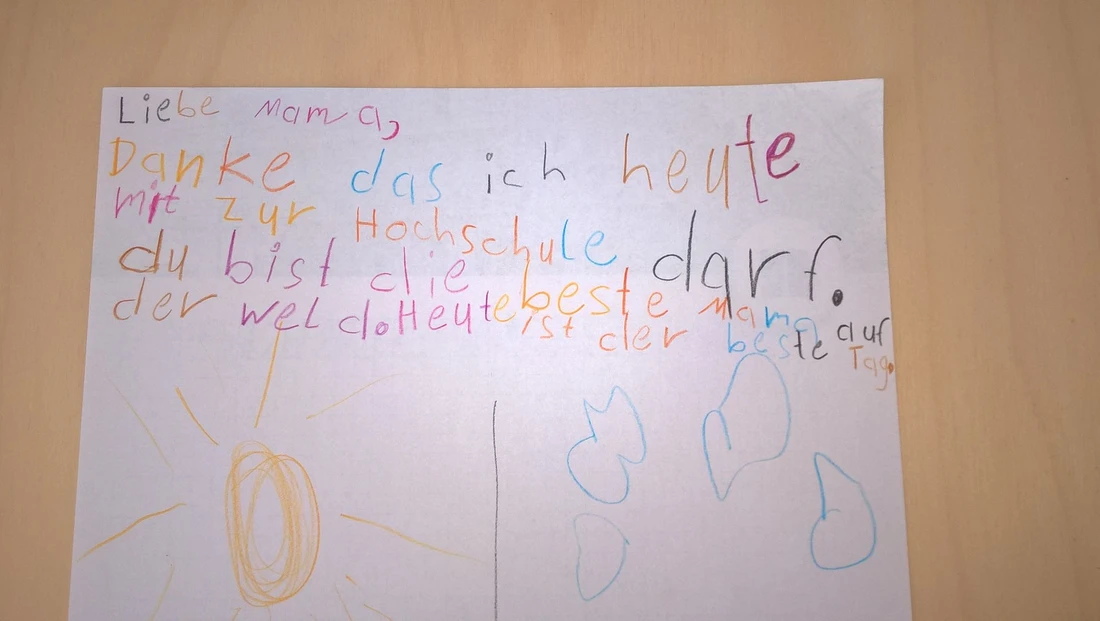 Liebe Mama,
Danke das ich heute
mit zur Hochschule darf.
du bist die beste Mama auf
der weld. Heute ist der beste Tag.